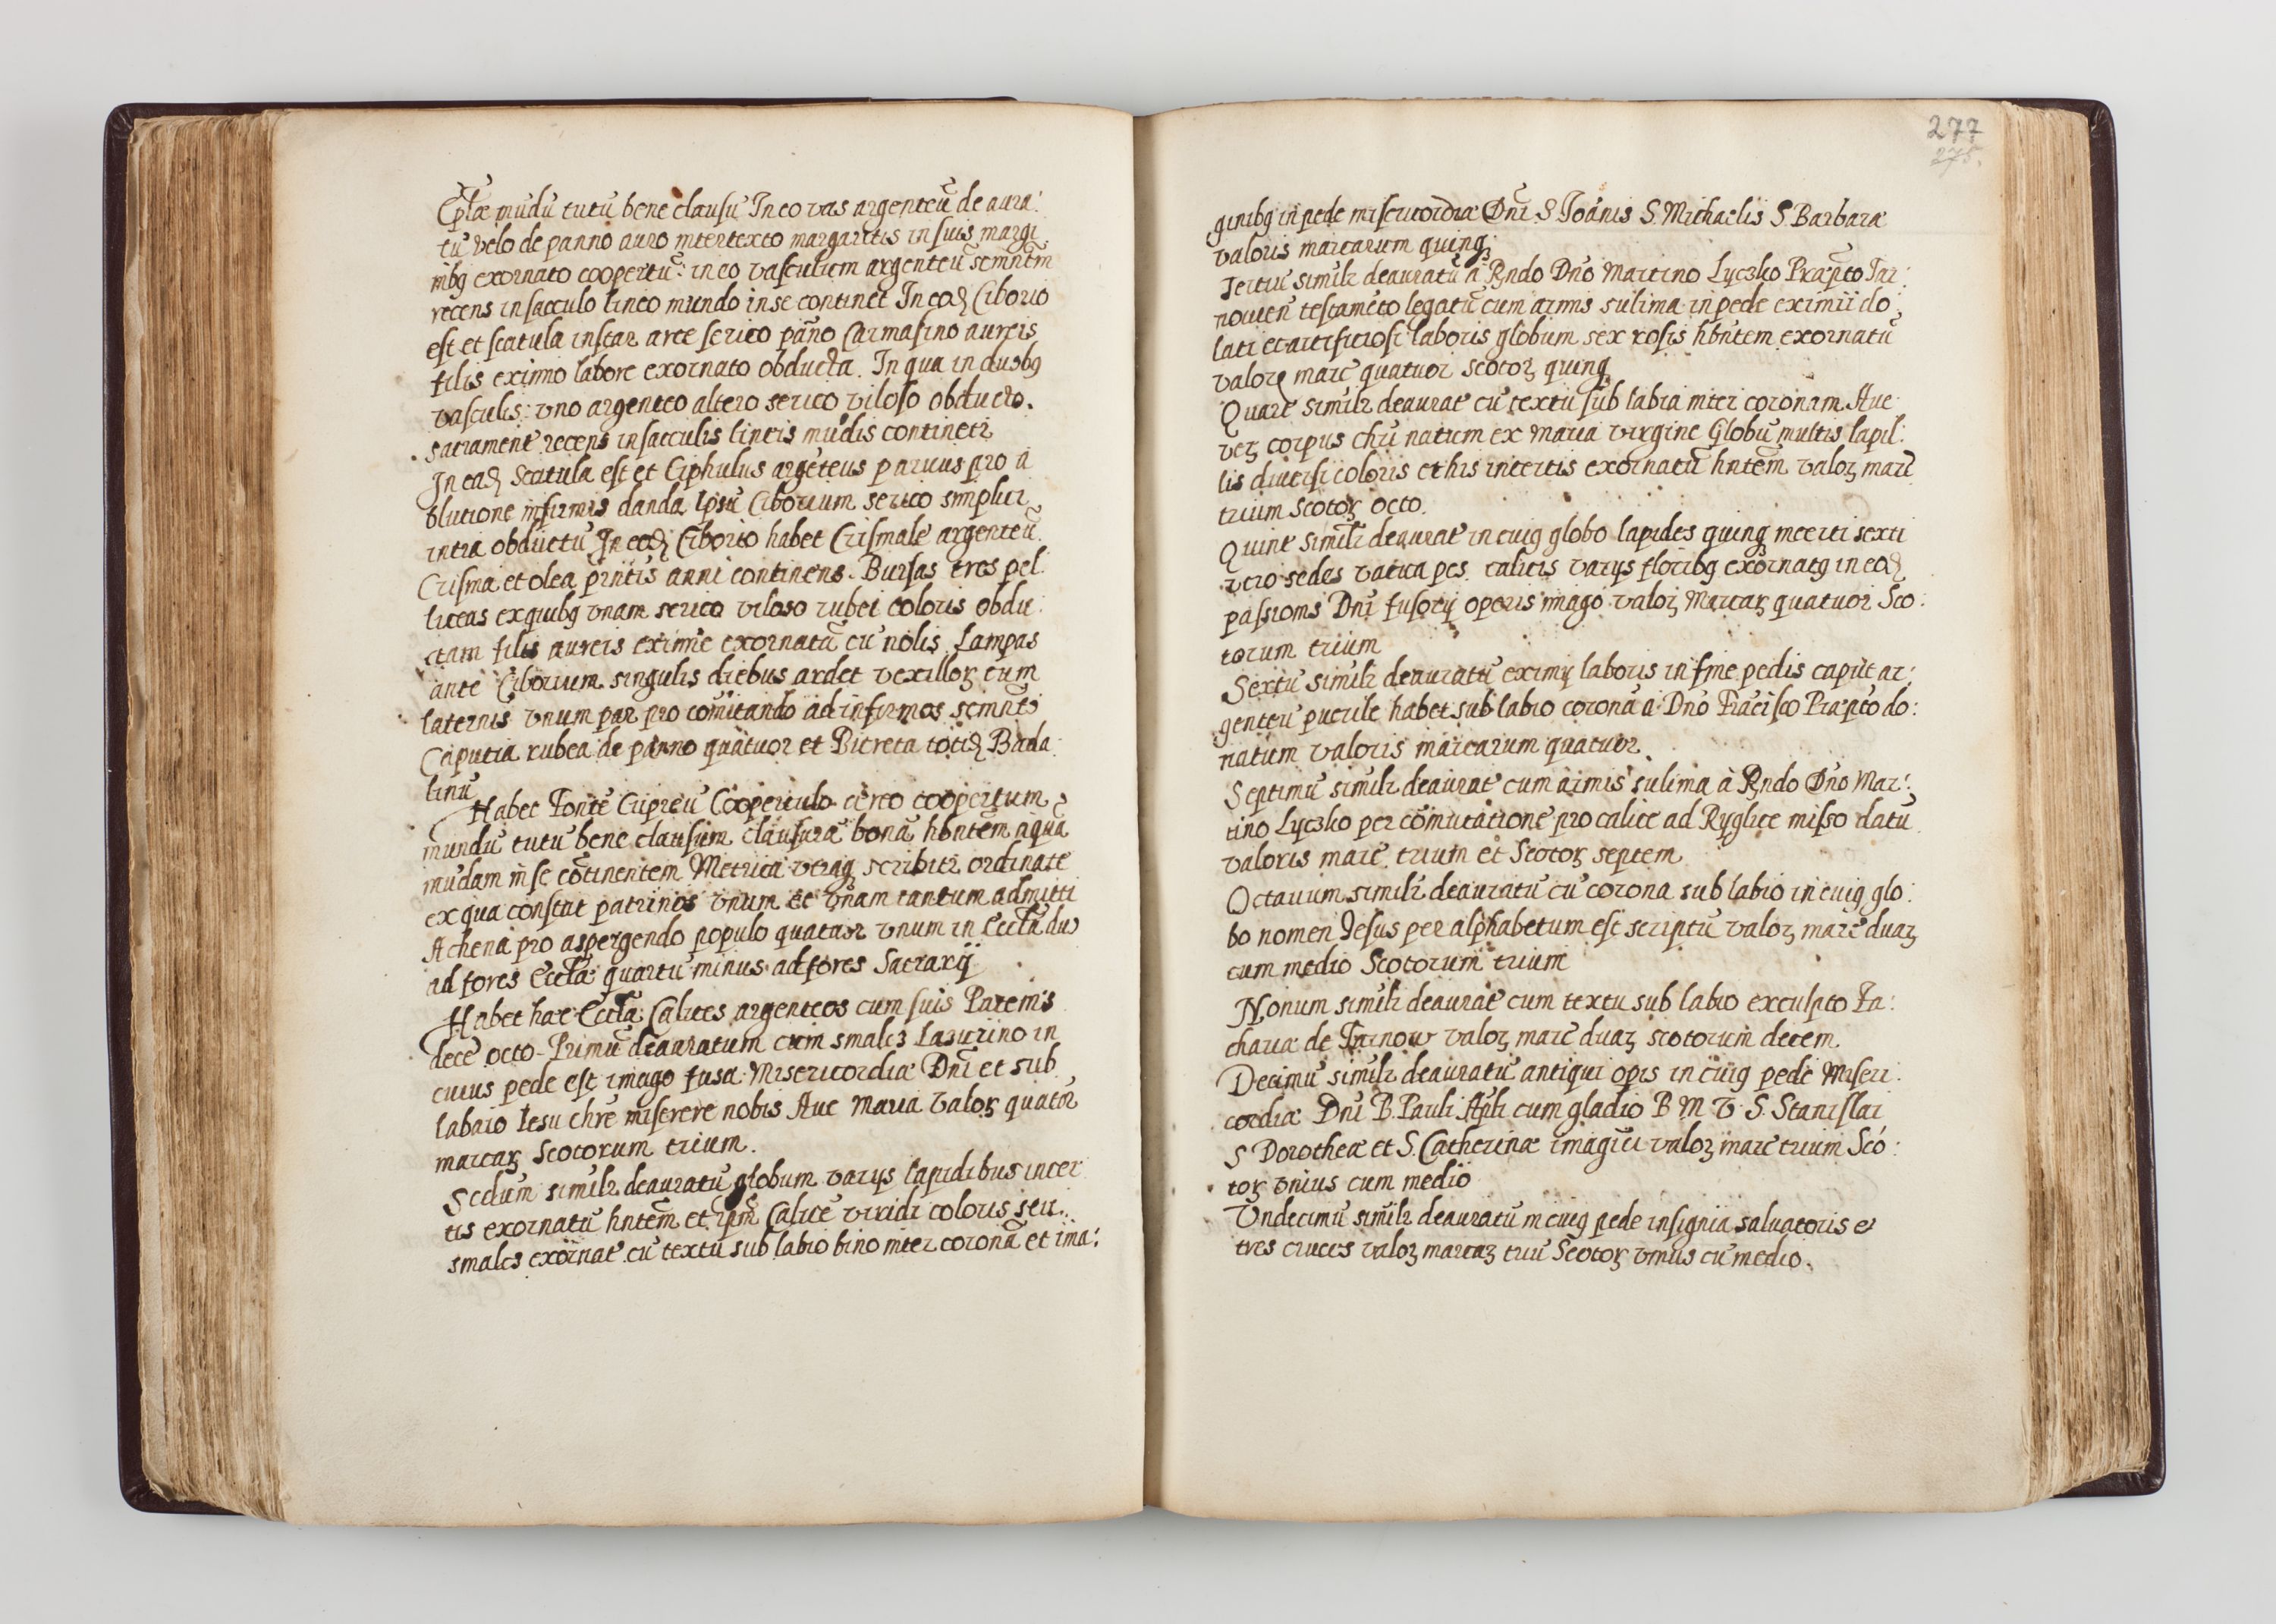 Eplæ mūdū tutū bene clausū In eo vas argenteū de aura:
tū velo de panno auro intertexto margaritis in suis margi
nibꝫ exornato coopertū: in eo vasculum argenteū semntm̄
recens in sacculo lineo mundo in se continet In eoꝺ Ciborio
est et scatula instar arce serico pāno Carmasino aureis
filis eximio labore exornato obducta. In qua in duobꝫ
vasculis: vno argenteo altero serico viloso obducto.
sacrament recens in sacculis lineis mūdis continetꝛ
In eaꝺ Scatula est et Ciphulus argēteus paruus pro a
blutione infirmis danda Ipsū Ciborium serico simplici
intra obductū In eoꝺ Ciborio habet Crismale argenteū
Crisma et olea prn̄tis anni continens. Bursas tres pel:
liceas ex quibꝫ vnam serico viloso rubei coloris obdu:
ctam filis aureis eximie exornatā cū nolis Lampas
ante Ciborium singulis diebus ardet vexilloꝝ cum
laternis vnum par pro comitando ad infirmos semn̄to
Caputia rubea de panno quatuor et Bireta totiꝺ Balda
linū
Habet Fontē Cupreū Cooperculo æreo coopertum
mundū tutū bene clausum clausura bonā hb̄ntem aquā
mūdam in se cōtinentem Metrica vtraqꝫ scribitꝛ ordinate
ex qua constat patrinos vnum et vnam tantum admitti
Achena pro aspergendo populo quatuor vnum in Eccl̄a duo
ad fores Eccl̄æ quartū minus ad fores Sacrarij
Habet hæc Eccl̄a Calices argenteos cum suis Patenis
decē octo – Primū deauratum cum smalcz Lasurino in
cuius pede est imago fusa Misericordiæ Dn̄i et sub
labaio Iesu chr̄e miserere nobis Aue Maria Valoꝝ quatōr
marcaꝝ Scotorum trium.
Scdum similꝛ deauratū globum varijs lapidibus inter
tis exornatū hn̄tem et ipm̄ Calicē viridi coloris seu
smalcs exornat cū textū sub labio bino inter coronā et ima:
277
275.
ginibꝫ in pede misericordiæ Dn̄i S. Ioānis S. Michaelis S. Barbaræ
valoris marcarum quinqꝫ
Tertiū similꝛ deauratū a Rn̄do Dn̄o Martino Lyczko Præpto Tar:
nouien testamēto legatū cum armis sulima in pede eximii do
lati et artificiosi laboris globum sex rosis hb̄ntem exornatū
valorꝭ marc quatuor scotoꝝ quinqꝫ
Quart similꝛ deaurat cū textū sub labia inter coronam Aue
veꝝ corpus chr̄i natum ex Maria virgine Globū multis lapil:
lis diuersi coloris et his incertis exornatū hn̄tem valoꝝ marc
trium Scotoꝝ octo.
Quint similꝛ deaurat in cuiꝫ globo lapides quinqꝫ incerti sexti
vero sedes vacua pes calicis varijs floribꝫ exornatꝫ in eoꝺ
passionis Dn̄i fusorij operis imago valoꝝ Marcaꝝ quatuor Sco:
torum trium
Sextū similꝛ deauratū eximij laboris in fine pedis caput ar:
genteū puerile habet sub labio coronā a Dn̄o Frācisco Præpto do:
natum valoris marcarum quatuor.
Septimū similꝛ deaurat cum armis sulima à Rn̄do Dn̄o Mar:
tino Lyczko per cōmutationē pro calice ad Ryglice misso datū
valoris marc trium et Scotoꝝ septem
Octauum similꝛ deauratū cū corona sub labio in cuiꝫ glo:
bo nomen Iesus per alphabetum est scriptū valoꝝ marc duaꝝ
cum medio Scotorum trium
Nonum similꝛ deaurat cum textu sub labio exculpto Za:
chariæ de Tarnow valoꝝ marc duaꝝ scotorum decem
Decimū similꝛ deauratū antiqui opis in cuiꝫ pede Miseri:
cordiæ Dn̄i B. Pauli Apl̄i cum gladio B M V S. Stanislai
S Dorotheæ et S. Catherinæ imagīes valoꝝ marc trium Sco:
toꝝ vnius cum medio
Vndecimū similꝛ deauratū in cuiꝫ pede insignia saluatoris et
tres cruces valoꝝ marcaꝝ triū Scotoꝝ vnius cū medio.